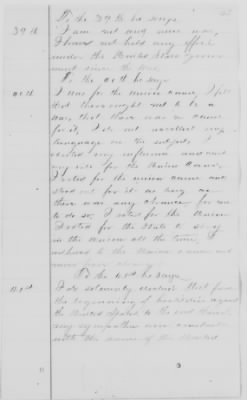 To the 39th he says
39th I am not any nor was,
I have not held any office
under the United States Govern
ment since the war.
To the 40th he says
40th I was for the Union cause, I felt
that there ought not to be a
war, that there was no cause
for it, I do not recollect my
language on the subject, I
exerted my influence and cast
my vote for the Union Cause.
I voted for the Union cause and
stood out for it as long as
there was any chance for me
to do so, I voted for the Union
I voted for the State to stay
in the Union all the time, I
adhered to the Union cause and
To the 43rd he says
43rd I do solemnly declare that from
the beginning of hostilities against
the United States to the end thereof
my sympathies were constantly
with the cause of the United